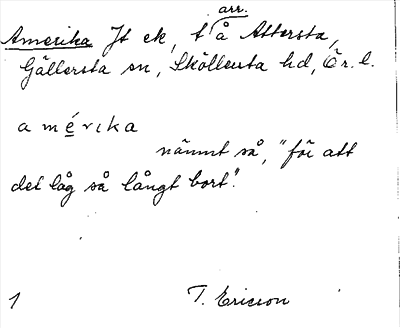 arr.
Amerika Jt ek, t å Attersta,
Gällersta sn, Sköllersta hd, Ör. l.
a m é r ı k a
nämnt så, "för att
det låg så långt bort".
1 T. Ericson